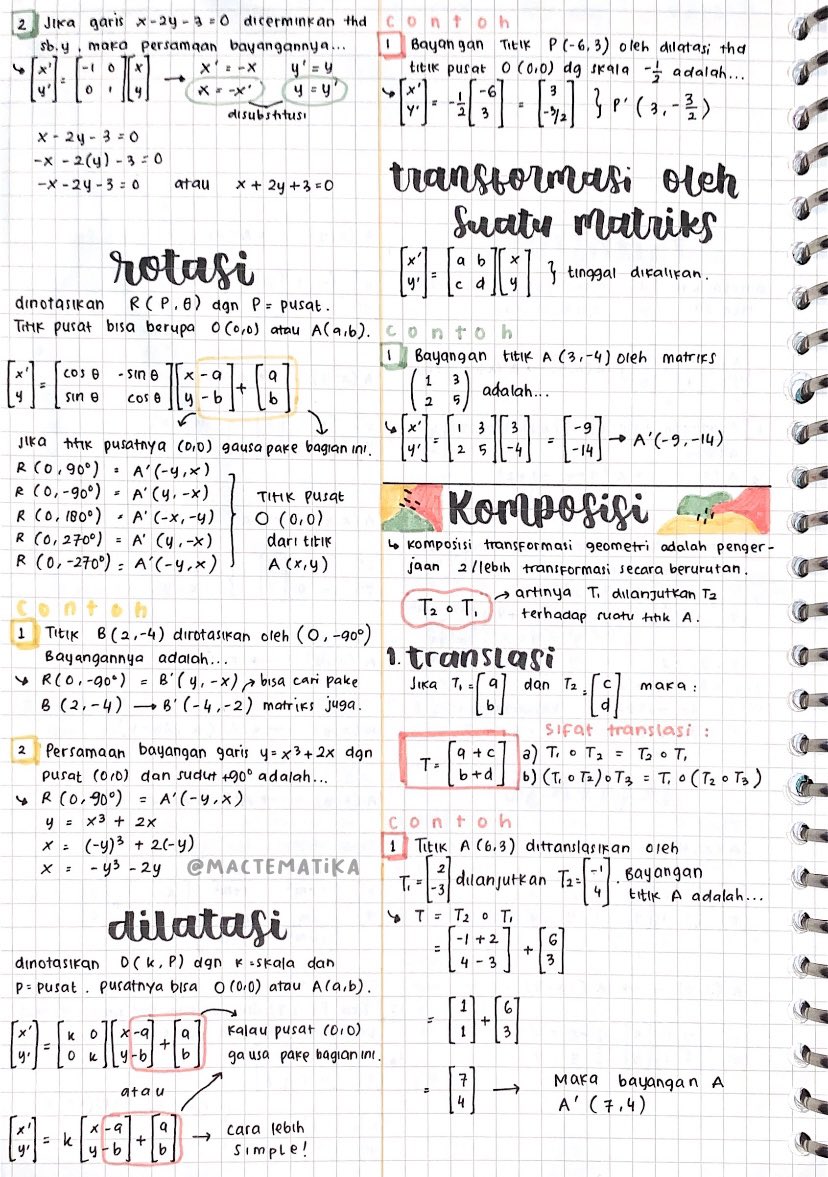 2 Jika garis x-2y-3=0 dicerminkan thd
sb.y, maka persamaan bayangannya...
↳ [x' y'] = [-1 0 0 1][x y] → x' = -x y' = y
x = -x' y = y'
disubstitusi
x - 2y - 3 = 0
-x - 2(y) - 3 = 0
-x - 2y - 3 = 0 atau x + 2y + 3 = 0
rotasi
dinotasikan R(P,θ) dgn P = pusat.
Titik pusat bisa berupa O(0,0) atau A(a,b).
[x' y] = [cos θ -sin θ sin θ cos θ][x - a y - b] + [a b]
Jika titik pusatnya (0,0) gausa pake bagian ini.
R(0,90°) = A'(-y,x)
R(0,-90°) = A'(y,-x)
R(0,180°) = A'(-x,-y)
R(0,270°) = A'(y,-x)
R(0,-270°) = A'(-y,x)
Titik pusat
O (0,0)
dari titik
A(x,y)
contoh
1 Titik B(2,-4) dirotasikan oleh (0,-90°)
Bayangannya adalah...
↳ R(0,-90°) = B'(y,-x) → bisa cari pake
B (2,-4) → B'(-4,-2) matriks juga.
2 Persamaan bayangan garis y = x³+2x dgn
pusat (0,0) dan sudut +90° adalah...
↳ R(0,90°) = A'(-y,x)
y = x³ + 2x
x = (-y)³ + 2(-y)
x = -y³ - 2y @MACTEMATiKA
dilatasi
dinotasikan D(k,P) dgn k = skala dan
P = pusat. pusatnya bisa O(0,0) atau A(a,b).
[x' y'] = [k 0 0 k][x-a y-b] + [a b]
kalau pusat (0,0)
ga usa pake bagian ini.
atau
[x' y'] = k [x-a y-b] + [a b] →
cara lebih
simple!
contoh
1 Bayangan Titik P(-6,3) oleh dilatasi thd
titik pusat O(0,0) dg skala -1/2 adalah...
↳ [x' y'] = -1/2 [-6 3] = [3 -3/2] } P' (3, -3/2)
transformasi oleh
suatu matriks
[x' y'] = [a b c d][x y] } tinggal dikalikan.
contoh
1 Bayangan titik A(3,-4) oleh matriks
(1 3 2 5) adalah...
↳ [x' y'] = [1 3 2 5][3 -4] = [-9 -14] → A'(-9,-14)
Komposisi
↳ komposisi transformasi geometri adalah penger-
jaan 2/lebih transformasi secara berurutan.
T₂ ∘ T₁ → artinya T₁ dilanjutkan T₂
terhadap suatu titik A.
1. translasi
Jika T₁ = [a b] dan T₂ = [c d] maka :
sifat translasi :
T = [a + c b + d] a) T₁ ∘ T₂ = T₂ ∘ T₁
b) (T₁ ∘ T₂) ∘ T₃ = T₁ ∘ (T₂ ∘ T₃)
contoh
1 Titik A(6,3) ditranslasikan oleh
T₁ = [2 -3] dilanjutkan T₂ = [-1 4]. Bayangan
titik A adalah...
↳ T = T₂ ∘ T₁
= [-1 + 2 4 - 3] + [6 3]
= [1 1] + [6 3]
= [7 4] → Maka bayangan A
A' (7,4)